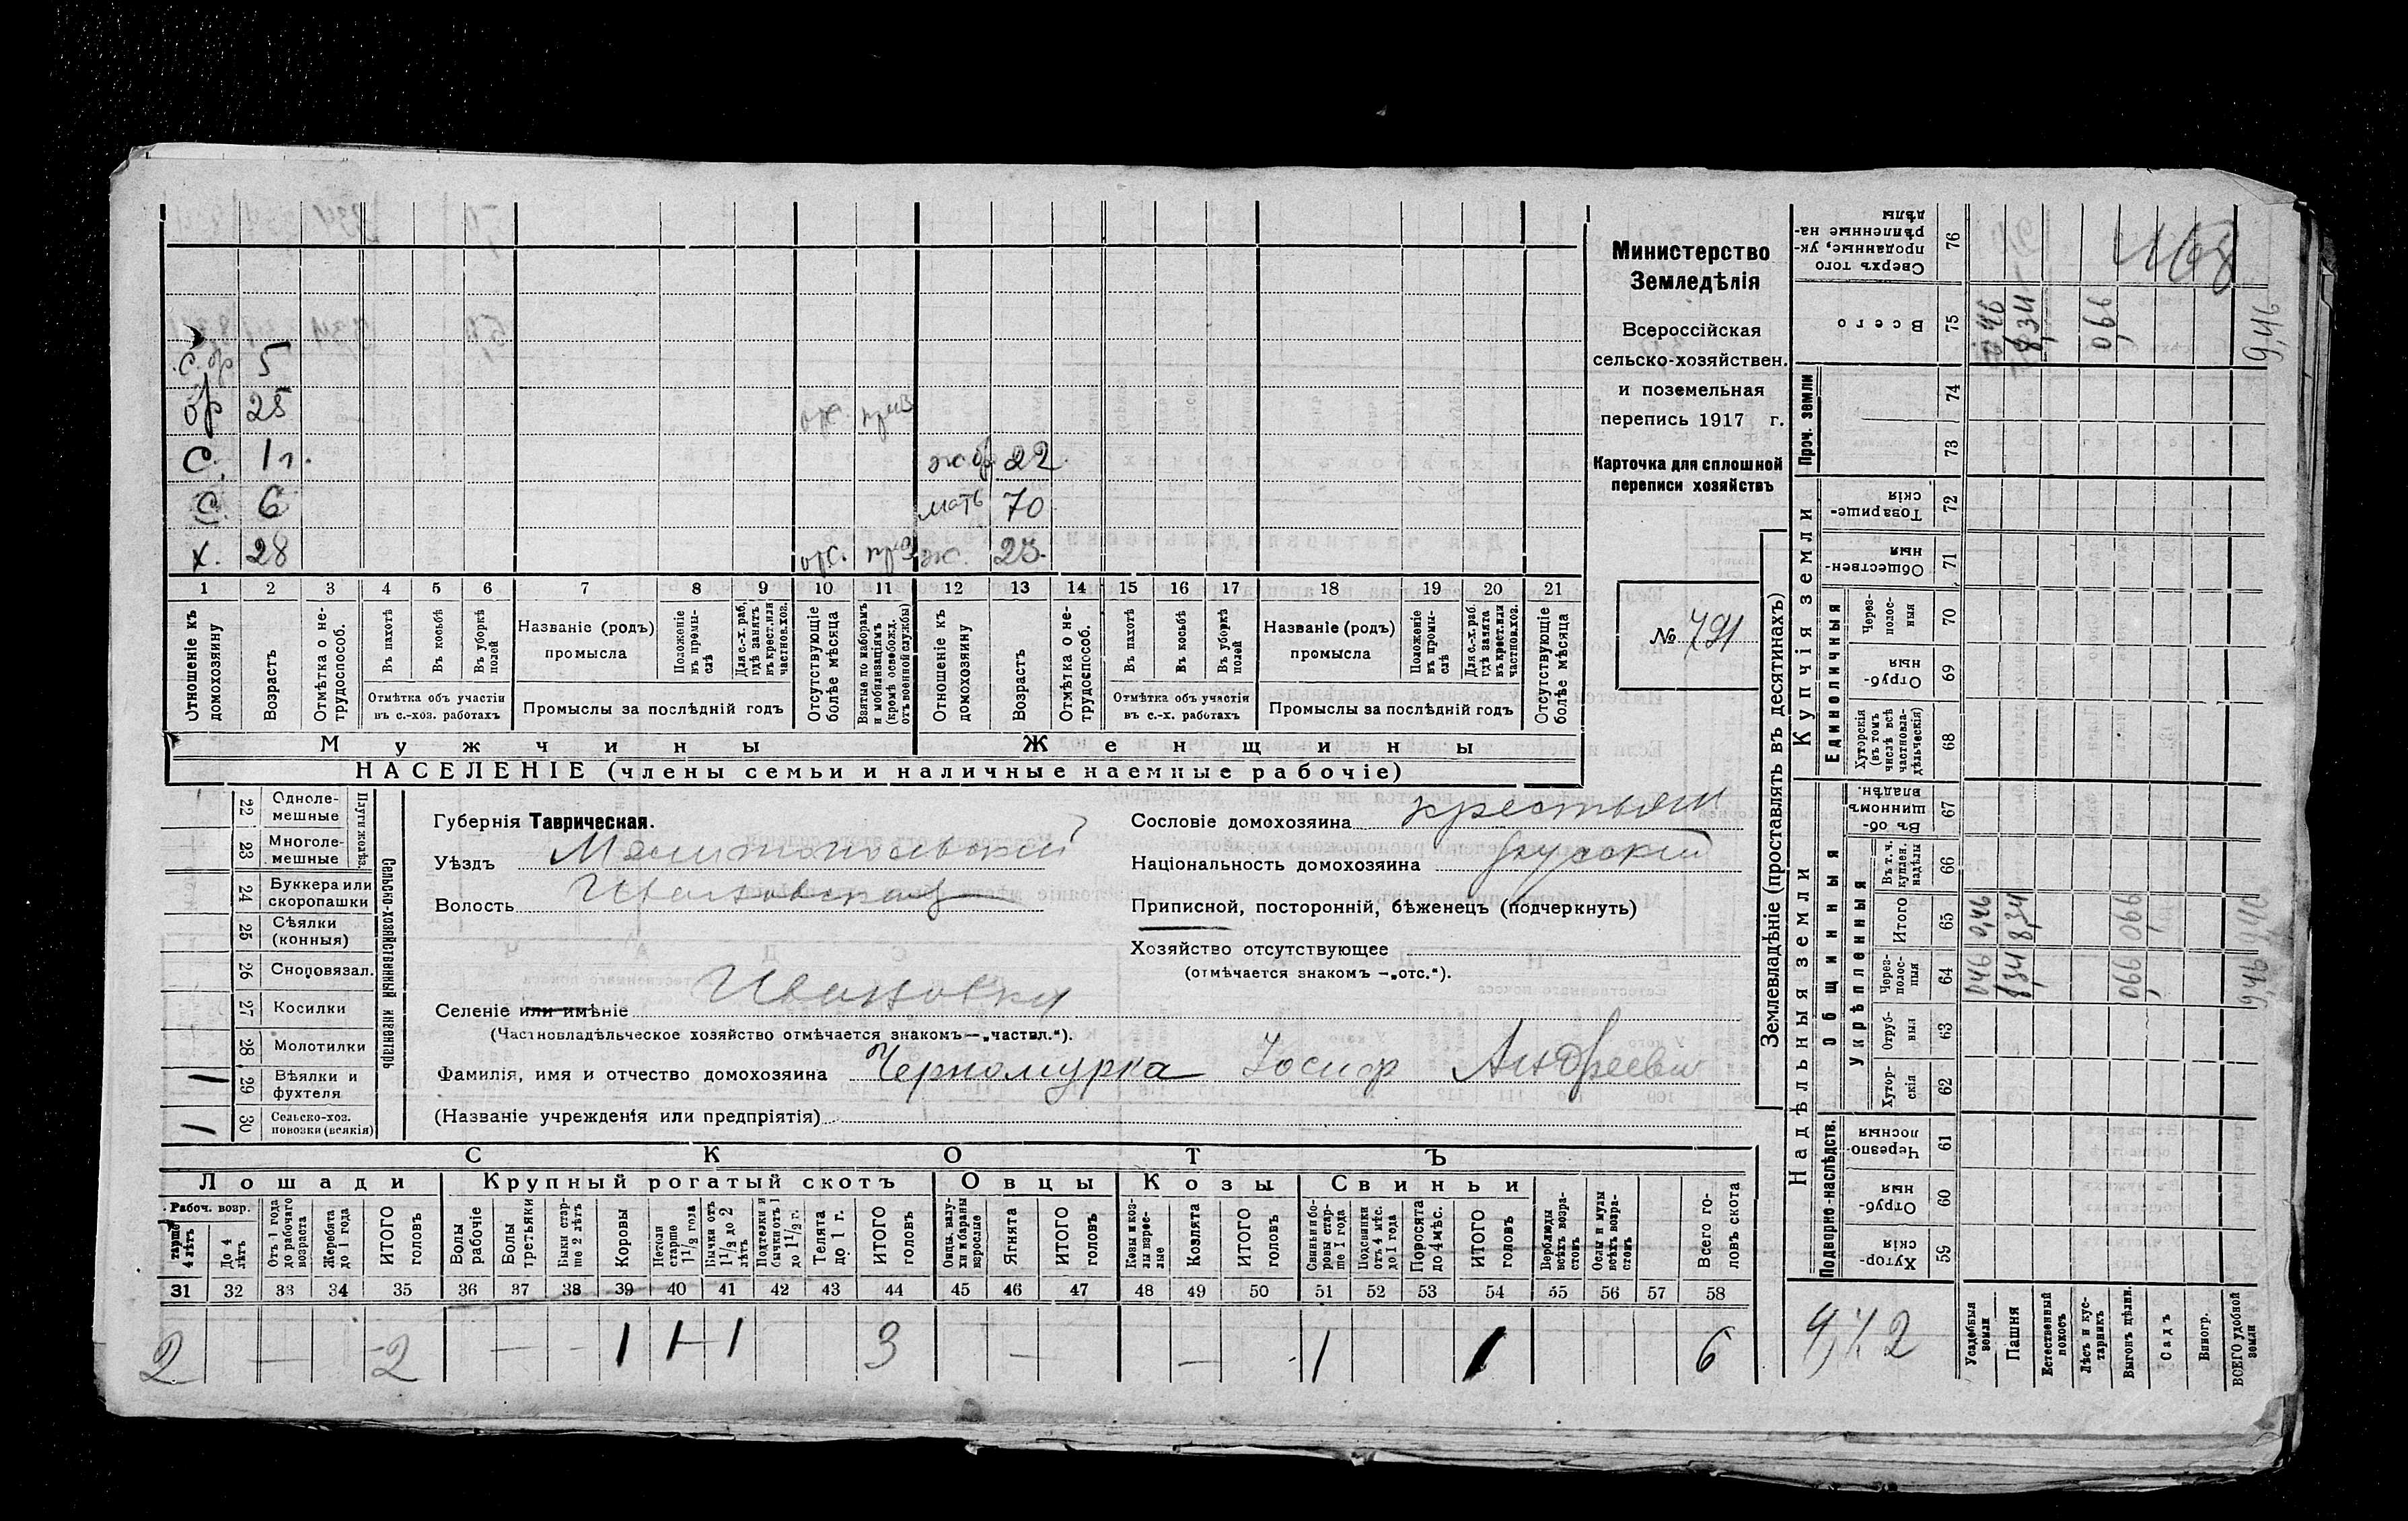 Министерство
Земледѣлія
Всероссійская
сельско-хозяйствен.
и поземельная
перепись 1917 г.
Карточка для сплошной
переписи хозяйствъ
№ 791
с. бр 5
бр 25
с. 1 г. ж. бр 22
с. 6 мать 70
х. 28 ж. 23.
1 2 3 4 5 6 7 8 9 10 11 12 13 14 15 16 17 18 19 20 21
Отношеніе къ домохозяину
Возрастъ
Отмѣтка о не-трудоспособ.
Въ пахотѣ
Въ косьбѣ
Въ уборкѣ полей
Отмѣтка объ участіи
въ с.-хоз. работахъ
Названіе (родъ)
промысла
Положеніе въ промы-слѣ
Для с.-х. раб. гдѣ занятъ въ крест. или частнов. хоз.
Промыслы за послѣдній годъ
Отсутствующіе болѣе мѣсяца
Взятые по наборамъ и мобилизаціямъ (кромѣ освобожд. отъ военной службы)
Отношеніе къ домохозяину
Возрастъ
Отмѣтка о не-трудоспособ.
Въ пахотѣ
Въ косьбѣ
Въ уборкѣ полей
Отмѣтка объ участіи
въ с.-х. работахъ
Названіе (родъ)
промысла
Положеніе въ промы-слѣ
Для с.-х. раб. гдѣ занята въ крест. или частнов. хоз.
Промыслы за послѣдній годъ
Отсутствующіе болѣе мѣсяца
Мужчины Женщины
НАСЕЛЕНІЕ (члены семьи и наличные наемные рабочіе)
22 Однолемешные
23 Многолемешные
Плуги желѣз.
24 Буккера или скоропашки
25 Сѣялки (конныя)
26 Сноповязал.
27 Косилки
28 Молотилки
1 29 Вѣялки и фухтеля
1 30 Сельско-хоз. повозки (всякія)
Сельско-хозяйственный инвентарь
Губернія Таврическая.
Уѣздъ Мелитопольский
Волость Ивановская
Селеніе или имѣніе Ивановка
(Частновладѣльческое хозяйство отмѣчается знакомъ—„частвл.“).
Фамилія, имя и отчество домохозяина Черномурка Іосиф Андреевич
(Названіе учрежденія или предпріятія)
Сословіе домохозяина крестьян
Національность домохозяина русский
Приписной, посторонній, бѣженецъ (подчеркнуть)
Хозяйство отсутствующее
(отмѣчается знакомъ —„отс.“).
СКОТЪ
Лошади Крупный рогатый скотъ Овцы Козы Свиньи
Рабоч. возр.
тарше 4 лѣтъ
До 4 лѣтъ
Отъ 1 года до рабочаго возраста
Жеребята до 1 года
ИТОГО головъ
Волы рабочіе
Волы третьяки
Быки старше 2 лѣтъ
Коровы
Нетели старше 1½ года
Бычки отъ 1½ до 2 лѣтъ
Подтелки и бычки отъ 1 до 1½ г.
Телята до 1 г.
ИТОГО головъ
Овцы, валухи и бараны взрослые
Ягнята
ИТОГО головъ
Козы и козлы взрослые
Козлята
ИТОГО головъ
Свиньи и боровы старше 1 года
Подсвинки отъ 4 мѣс. до 1 года
Поросята до 4 мѣс.
ИТОГО головъ
Верблюды всѣхъ возрастовъ
Ослы и мулы всѣхъ возрастовъ
Всего головъ скота
31 32 33 34 35 36 37 38 39 40 41 42 43 44 45 46 47 48 49 50 51 52 53 54 55 56 57 58
2 — 2 — - 1 1 1 3 — — 1 1 6
Землевладѣніе (проставлять въ десятинахъ)
Надѣльныя земли Купчія земли Проч. земли
Подворно-наслѣдств. Общинныя Единоличныя
Укрѣпленныя
Хуторскія 59
Отрубныя 60
Черезполосныя 61
Хуторскія 62
Отрубныя 63
Черезполосныя 64
Итого 65
Въ т. ч. куплен. надѣлы 66
Въ общинномъ владѣн. 67
Хуторскія (въ томъ числѣ всѣ частновладѣльческія) 68
Отрубныя 69
Черезполосныя 70
Общественныя 71
Товарищескія 72
73
74
Всего 75
Сверхъ того проданные, укрѣпленные надѣлы 76
Усадебныя земли
Пашня
Естественный покосъ
Лѣсъ и кустарникъ
Выгонъ цѣлин.
Садъ
Виногр.
ВСЕГО удобной земли
0,46 8,34 0,66 9,46
0,46 8,34 0,66
8,34 0,66 9,46